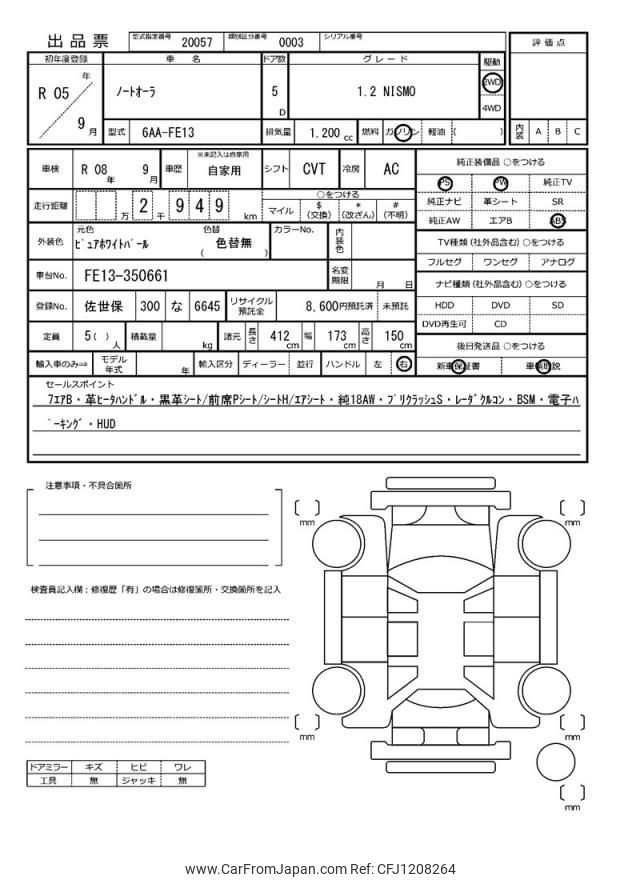 出品票 型式指定番号 20057 類別区分番号 0003 シリアル番号
評価点
初年度登録 車名 ドア数 グレード 駆動
R 05 年 9 月 ノートオーラ 5 D 1.2 NISMO 2WD 4WD
型式 6AA-FE13 排気量 1,200 cc 燃料 ガソリン 軽油 ( )
内装 A B C
車検 R 08 年 9 月 車歴 ※未記入は自家用 自家用 シフト CVT 冷房 AC
走行距離 万 2 千 9 4 9 km ○をつける
マイル $(交換) *(改ざん) #(不明)
外装色 元色 ピュアホワイトパール 色替 ( 色替無 ) カラーNo. 内装色
車台No. FE13-350661 名変期限 月 日
登録No. 佐世保 300 な 6645 リサイクル預託金 8,600円預託済 未預託
定員 5( ) 人 積載量 kg 諸元 長さ 412 cm 幅 173 cm 高さ 150 cm
輸入車のみ⇒ モデル年式 年 輸入区分 ディーラー 並行 ハンドル 左 右
純正装備品 ○をつける
PS PW 純正TV
純正ナビ 革シート SR
純正AW エアB ABS
TV種類 (社外品含む) ○をつける
フルセグ ワンセグ アナログ
ナビ種類 (社外品含む) ○をつける
HDD DVD SD
DVD再生可 CD
後日発送品 ○をつける
新車保証書 車輌取説
セールスポイント
7エアB・革ヒータハンドル・黒革シート/前席Pシート/シートH/エアシート・純18AW・プリクラッシュS・レーダクルコン・BSM・電子パ
ーキング・HUD
注意事項・不具合箇所
検査員記入欄：修復歴「有」の場合は修復箇所・交換箇所を記入
ドアミラー キズ ヒビ ワレ
工具 無 ジャッキ 無
mm
mm
mm
mm
mm
www.CarFromJapan.com Ref: CFJ1208264